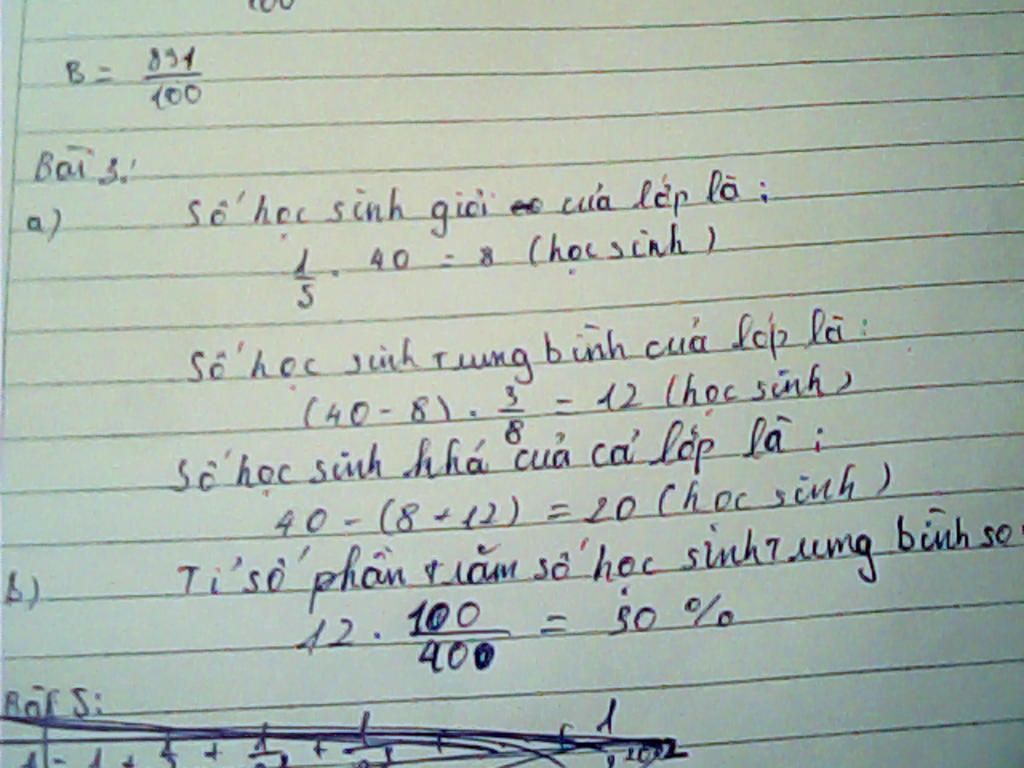 100
B = 891/100
Bài 3:
a) Số học sinh giỏi của lớp là:
1/5 . 40 = 8 (học sinh)
Số học sinh trung bình của lớp là:
(40 - 8) . 3/8 = 12 (học sinh)
Số học sinh khá của cả lớp là:
40 - (8 + 12) = 20 (học sinh)
b) Tỉ số phần trăm số học sinh trung bình so
12 . 100/400 = 30 %
Bài 5: